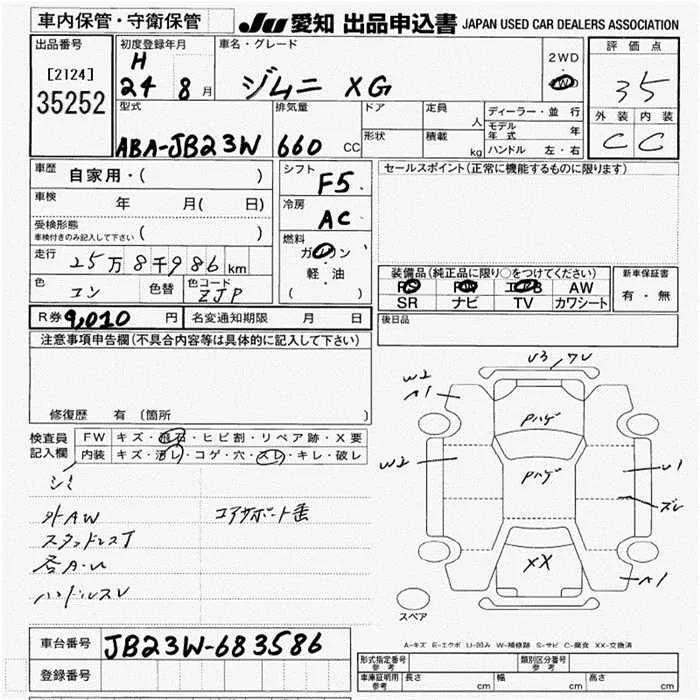 車内保管・守衛保管
JU 愛知 出品申込書 JAPAN USED CAR DEALERS ASSOCIATION
出品番号
[2124]
35252
初度登録年月
H
24 8 月
車名・グレード
ジムニ XG
2WD
4WD
評価点
35
外装 内装
C C
型式
ABA-JB23W
排気量
660 CC
ドア
形状
定員
人
積載
kg
ディーラー・並行
モデル年式 年
ハンドル 左・右
車歴 自家用・( )
車検 年 月( 日)
受検形態
車検付きのみ記入して下さい ( )
走行 25万8千986km
色 コン 色替 色コード ZJP
シフト F5
冷房 AC
燃料
ガソリン
軽・油
( )
セールスポイント(正常に機能するものに限ります)
装備品(純正品に限り○をつけてください)
PS PW エアB AW
SR ナビ TV カワシート
新車保証書
有・無
R券 9,010 円 名変通知期限 月 日
後日品
注意事項申告欄(不具合内容等は具体的に記入して下さい)
修復歴 有 (箇所 )
検査員記入欄
FW キズ・飛石・ヒビ割・リペア跡・X要
内装 キズ・汚レ・コゲ・穴・スレ・キレ・破レ
シミ
外AW エアサポート歪
スタッドレスT
各A・U
ハンドルスレ
U3 ワレ
W2
A1
Pハゲ
W2
Pハゲ
U1
ズレ
XX
A1
スペア
A-キズ E-エクボ U-凹み W-補修跡 S-サビ C-腐食 XX-交換済
車台番号 JB23W-683586
登録番号
形式指定番号 参考
類別区分番号 参考
車庫証明用 参考 長さ cm 幅 cm 高さ cm